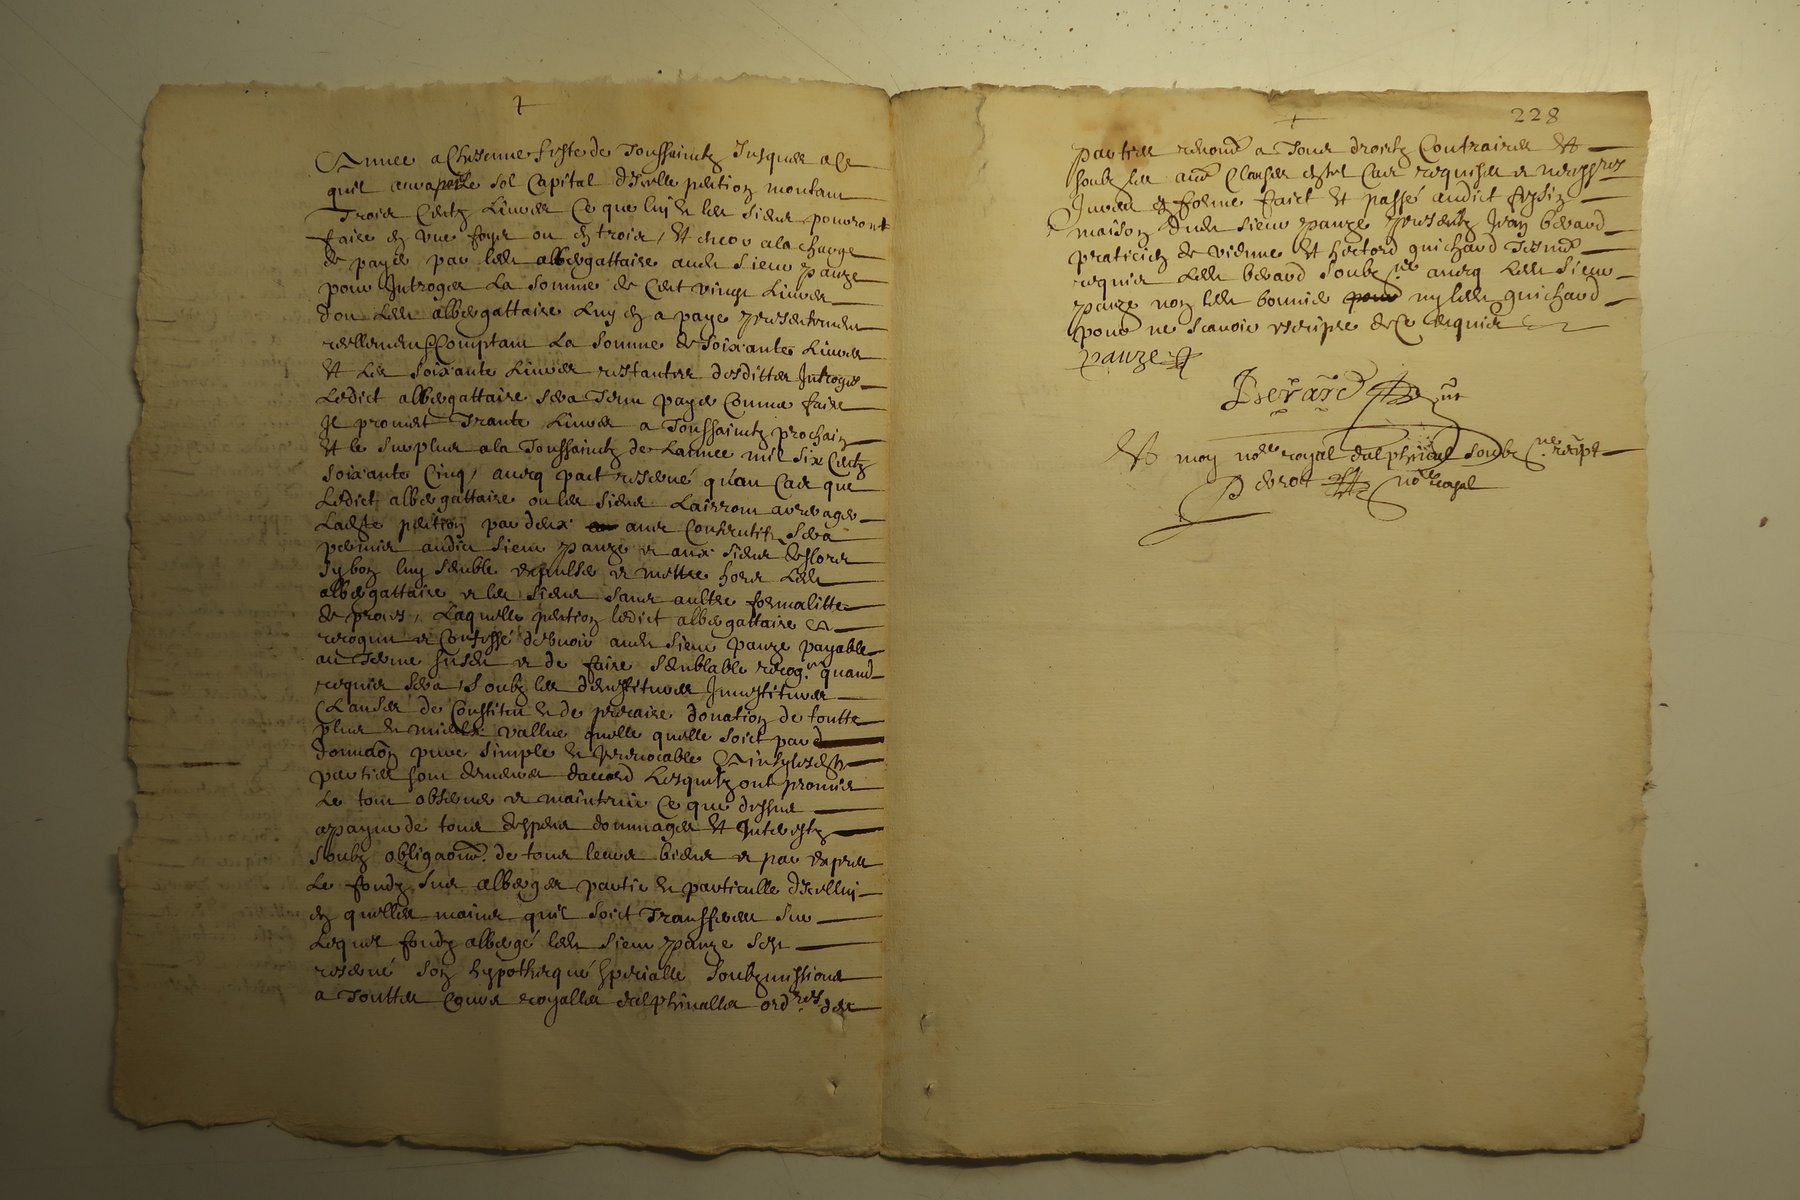 +
Annee a chescune feste de Toussainctz Jusques a ce
quil aura payé le sol Capital d'Icelle pention montant
Trois Centz Livres Ce que luy et les siens pourront
faire en une foys ou en trois, Et encor a la charge
de payer par ledt albergattaire audt sieur panze
pour Introges La somme de Cent vingt Livres
dont ledt albergattaire luy en a paye presentement
reellement Comptant La somme de soixante Livres
Et Les soixante Livres restantes desdittes Introges
Ledict albergattaire sera Tenu payer Comme faire
Il promet Trante Livres a Toussainctz prochain
Et le surplus a la Toussainctz de Lannee mil six Centz
soixante Cinq, avecq pact reservé quau Cas que
Ledict albergattaire ou les siens Lairront arrerager
Ladte pention par deux ans Consecutifs sera
permis audict sieur panze et aux siens deslors
sy bon luy semble expulser et mettre hors ledt
albergattaire et les siens sans aultre formalitte
de proces, Laquelle pention ledict albergattaire a
recognu et Confessé debvoir audt sieur panze payable
au Terme susdt et de faire semblable recog.on quand
requis sera, soubz les devestitures Investitures
Clauses de Constitut et de precaire donation de toutte
plus et mieulx vallue quelle quelle soict par
donnaon pure simple et Irrevocable Ainsy lesdts
parties sont demeures daccord Lesquels ont promis
Le tout observer et maintenir Ce que dessus
a payne de tous despens dommages Et Interestz
soubz obligaons de tous leurs biens et par expres
Le fondz sus alberger partie et particulle d'Icelluy
en quelles mains quil soict Transferer sur
Lequel fondz albergé ledt sieur panze sest
reservé son hypothecque specialle soubzmissions
a Touttes Cours royalles delphinalles ordres des
228
+
parties renonc a Tous droictz Contraires Et
soubz les aues Clauses estel Cas requises et necessres
Juree en forme faict Et passé audict fezin
maison dudt sieur panze presentz Jean berard
praticien de vienne Et hectord guichard Tesmns
requis ledt berard soubzné avecq ledt sieur
panze non ledt bonnie ny ledt guichard
pour ne scavoir escripre de Ce Requis
panze
Berard
Et moy nore royal delphinal soubzne recept
nore royal